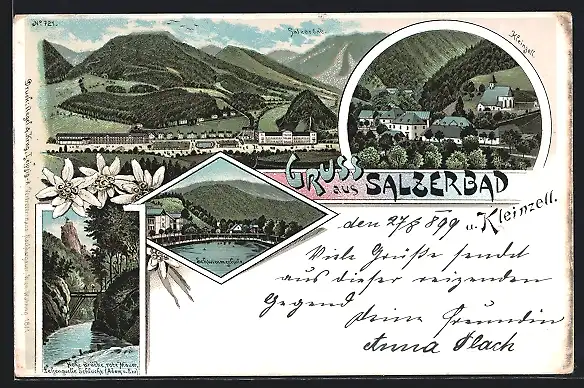 No 721.
Salzerbad.
Kleinzell.
GRUSS
aus SALZERBAD
u. Kleinzell.
Schwimmschule
Hohe Brücke, rote Mauer,
Schlucht (Adam u. Eva)
den 27/8 899
Viele Grüße sendet
aus dieser reizenden
Gegend
Deine Freundin
Anna Flach